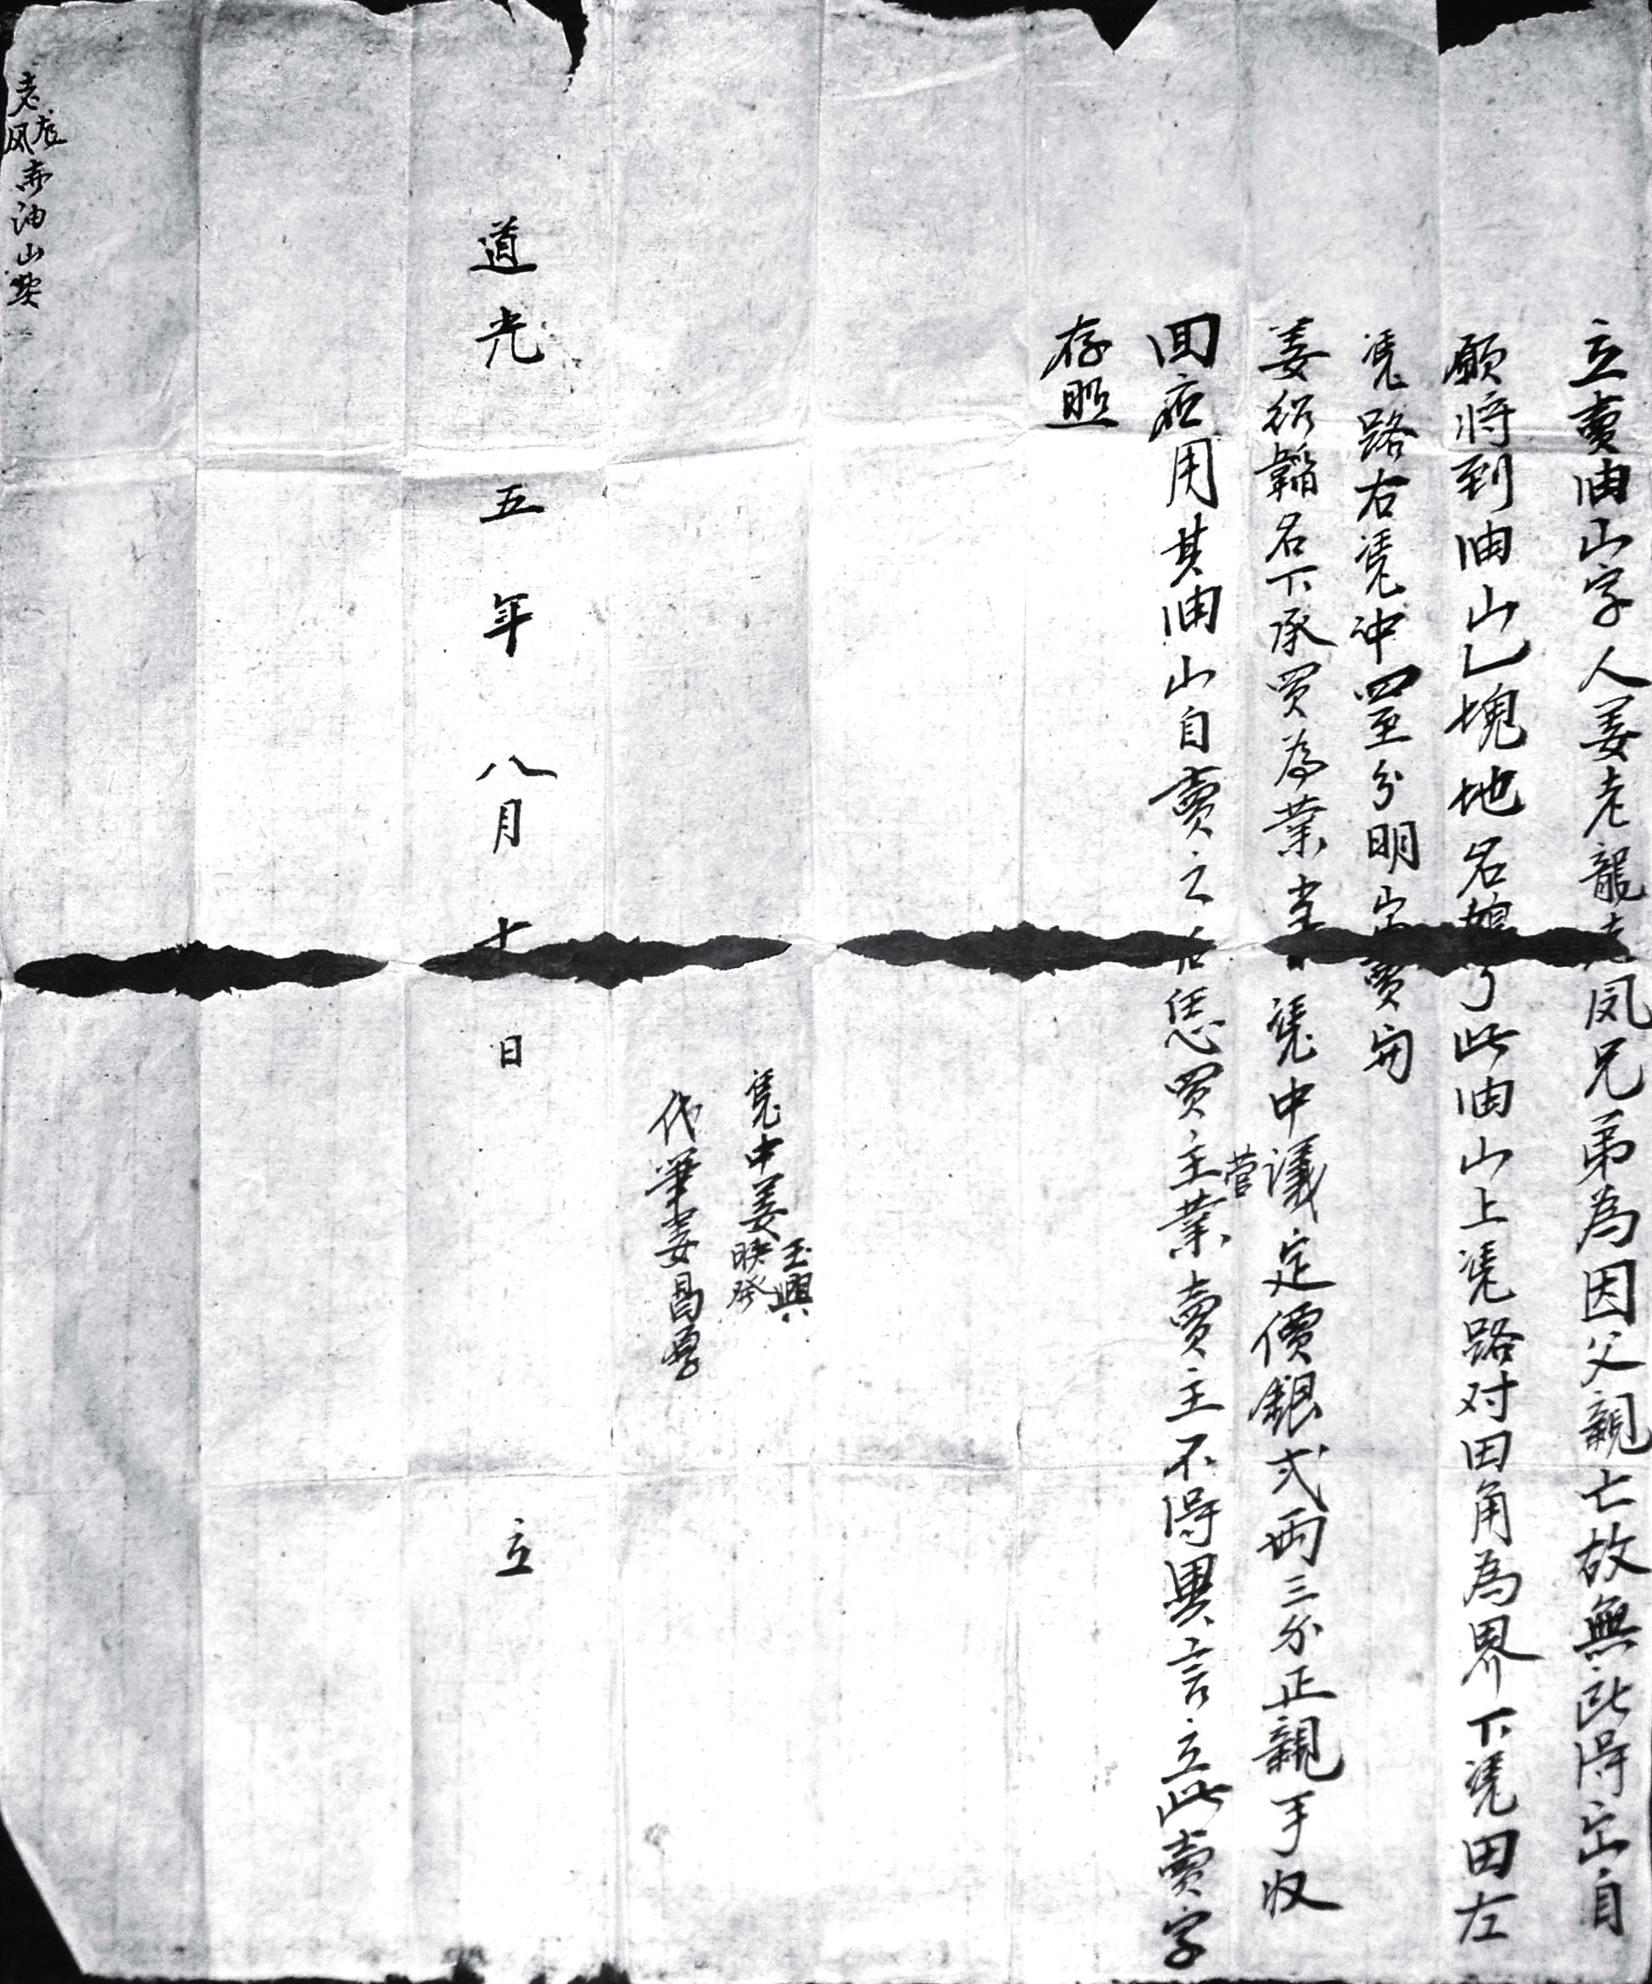 立賣油山字人姜老龍老凤兄弟為因父親亡故無北得出自
願將到油山乚塊地名此油山上凴路对田角為界下凴田左
凴路右凴冲四至分明出賣與
姜紹韜名下承買為業當日凴中議定價銀弍両三分正親手收
回應用其油山自賣之后恁買主管業賣主不得異言立此賣字
存照
凴中姜玉興映發
代筆姜昌厚
道光五年八月十日立
老龙凤賣油山契